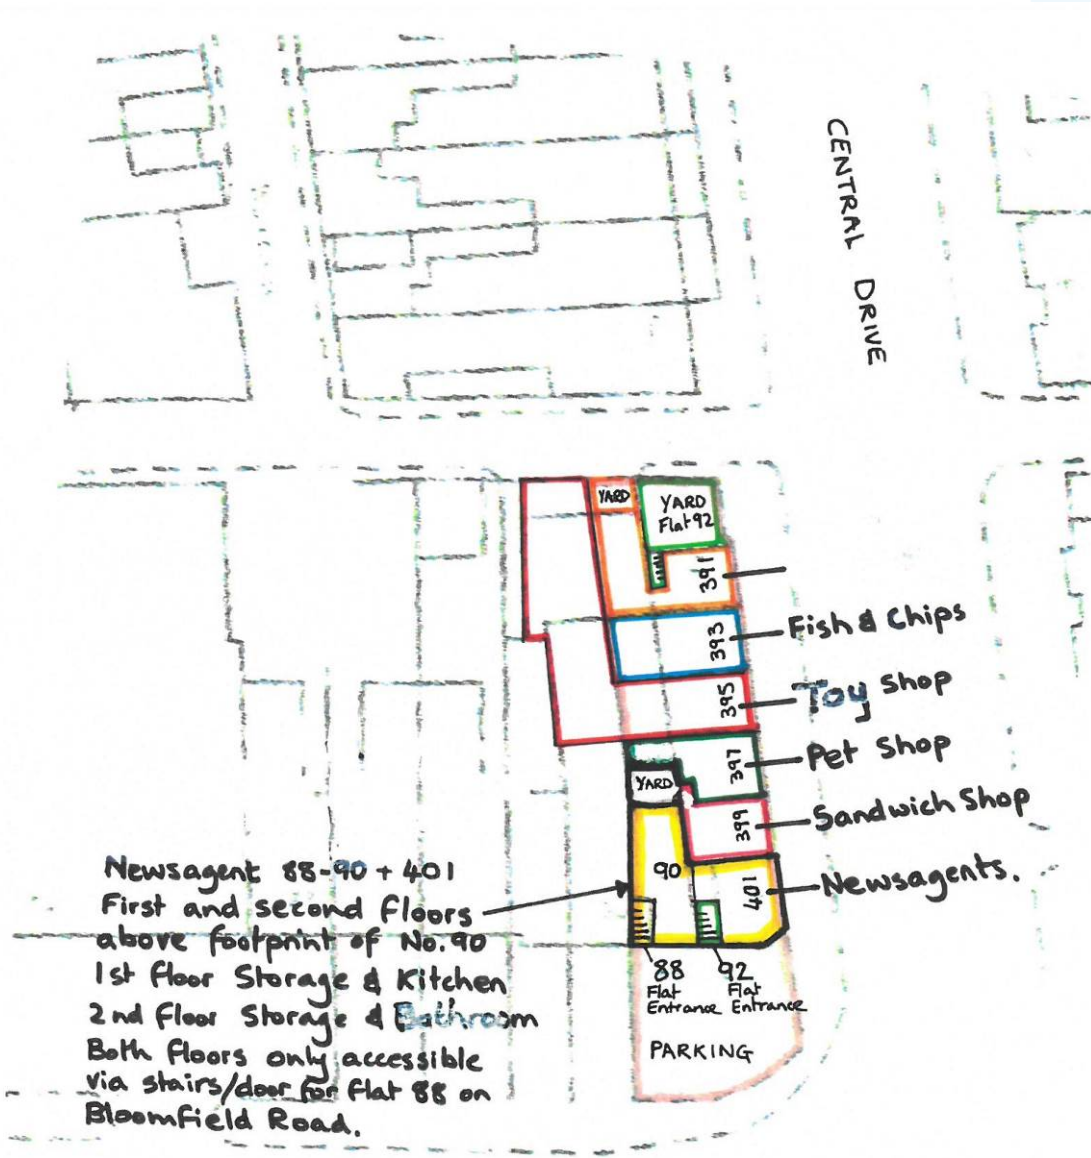 CENTRAL DRIVE
YARD
YARD
Flat 92
391
393
Fish & Chips
395
Toy Shop
397
Pet Shop
YARD
399
Sandwich Shop
90
401
Newsagents.
Newsagent 88-90 + 401
First and second floors
above footprint of No. 90
1st floor Storage & Kitchen
2nd Floor Storage & Bathroom
Both floors only accessible
via stairs/door for flat 88 on
Bloomfield Road.
88
Flat
Entrance
92
Flat
Entrance
PARKING